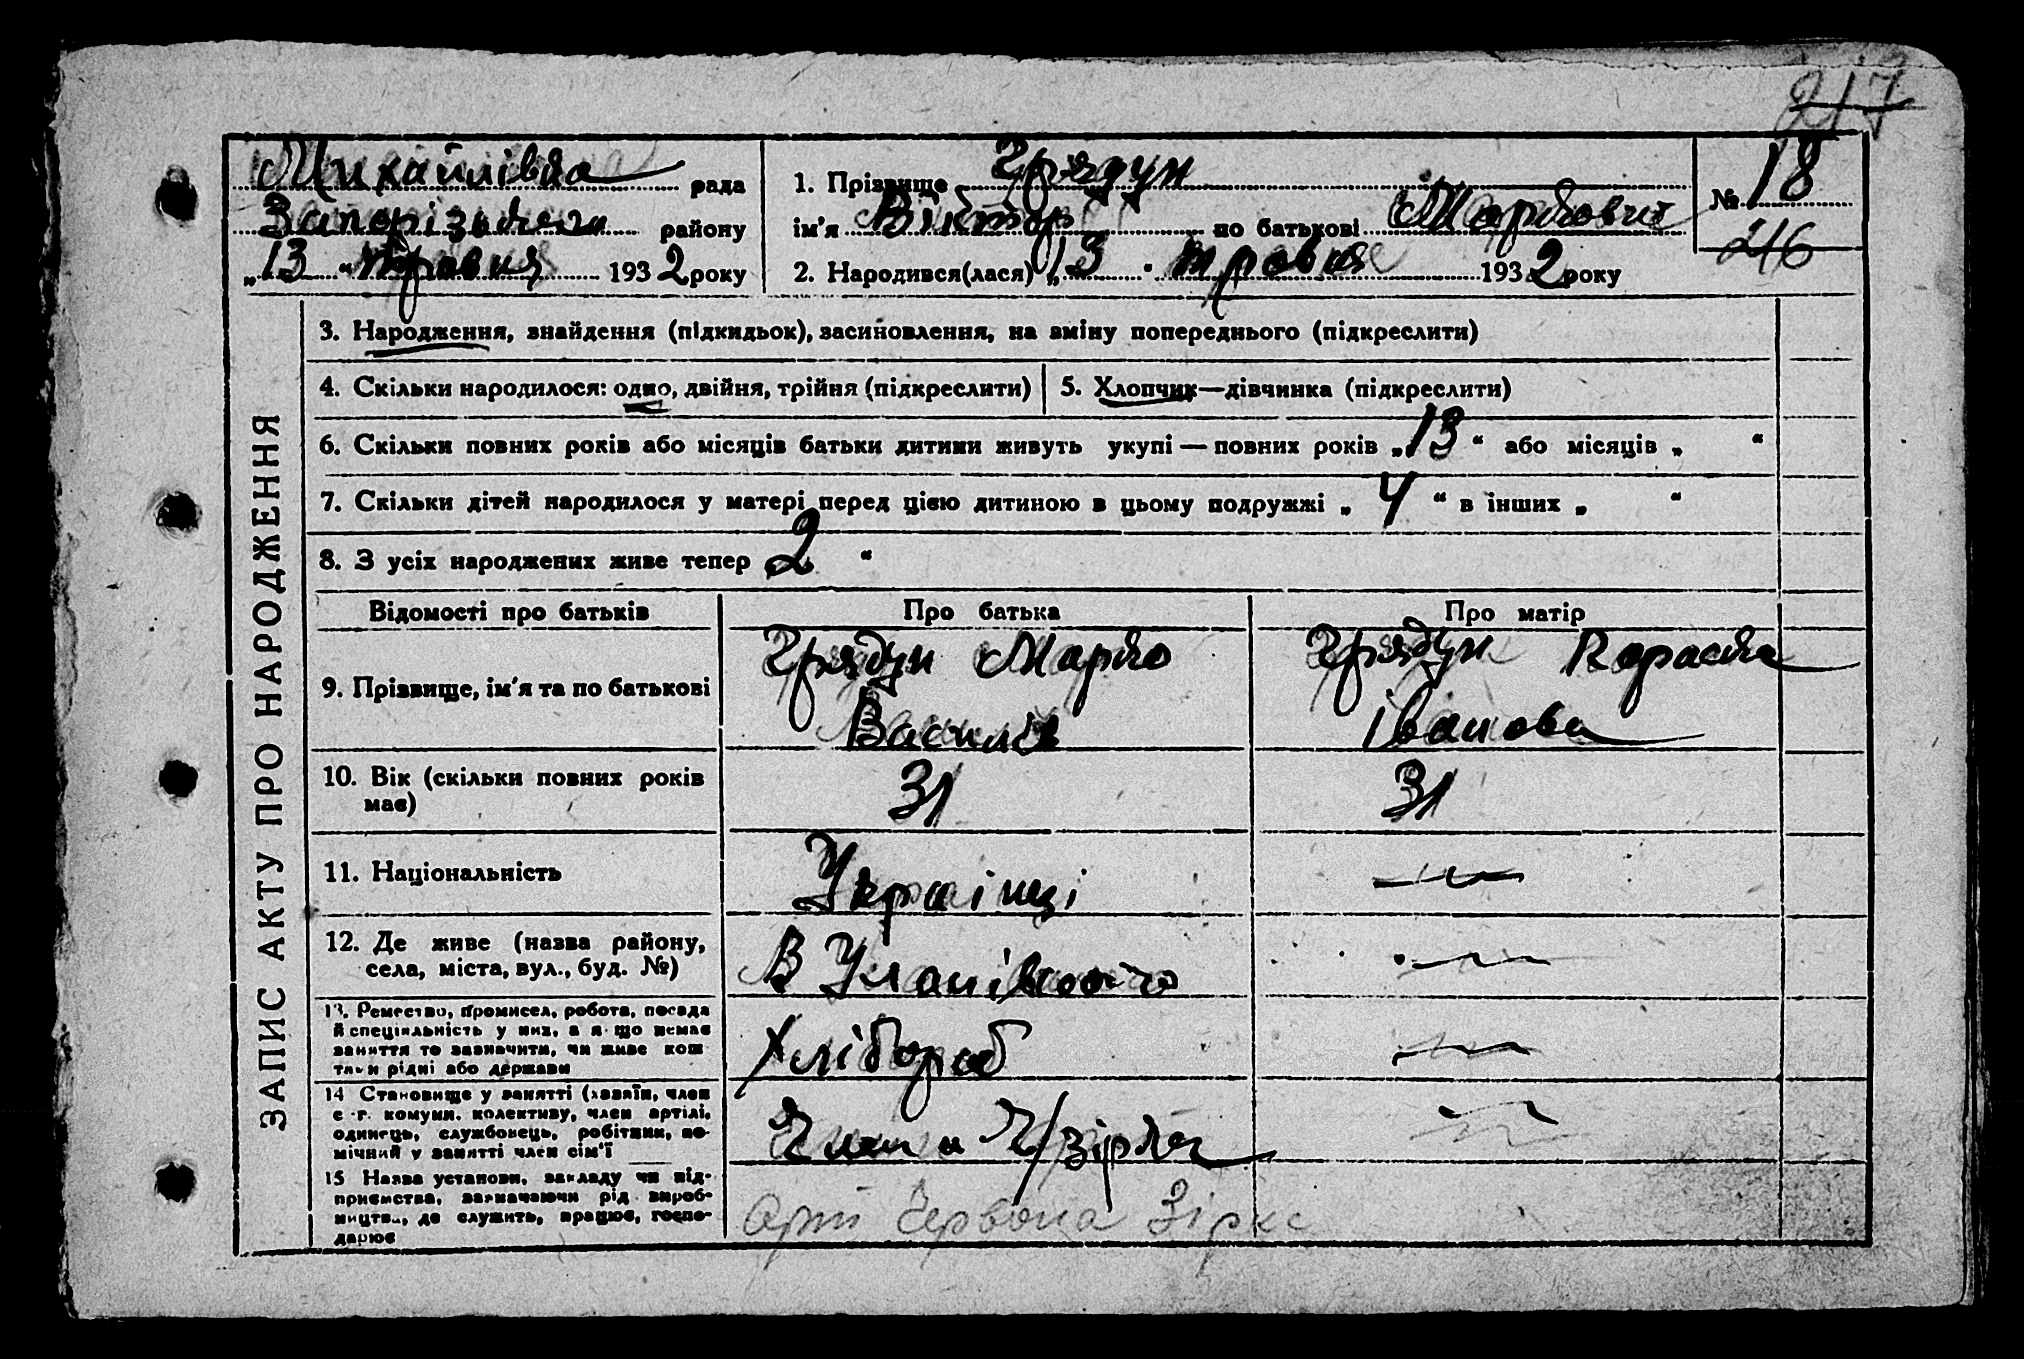 217
Михайлівка рада
Запорізького району
„13“ травня 1932 року
1. Прізвище Грядун
ім'я Віктор по батькові Маркович
2. Народився(лася) „13“ травня 1932 року
№ 18
216
ЗАПИС АКТУ ПРО НАРОДЖЕННЯ
3. Народження, знайдення (підкидьок), засиновлення, на зміну попереднього (підкреслити)
4. Скільки народилося: одно, двійня, трійня (підкреслити)
5. Хлопчик—дівчинка (підкреслити)
6. Скільки повних років або місяців батьки дитини живуть укупі — повних років „13“ або місяців „ “
7. Скільки дітей народилося у матері перед цією дитиною в цьому подружжі „4“ в інших „ “
8. З усіх народжених живе тепер 2 “
Відомості про батьків
Про батька
Про матір
9. Прізвище, ім'я та по батькові
Грядун Марко
Василів
Грядун Параска
Іванова
10. Вік (скільки повних років
має)
31
31
11. Національність
Українці
12. Де живе (назва району,
села, міста, вул., буд. №)
В
13. Ремество, промисел, робота, посада
й спеціяльність у них, а я що немає
заняття то зазначити, чи живе кош
тами рідні або держави
Хлібороб
14 Становище у занятті (хазяїн, член
с.-г. комуни, колективу, член артілі,
одинець, службовець, робітник, по-
мічний у занятті член сім'ї
Член Ч/зірка
15 Назва установи, закладу чи під-
приємства, зазначаючи рід вироб-
ництва, де служить, працює, госпо-
дарює
Арт Червона Зірка